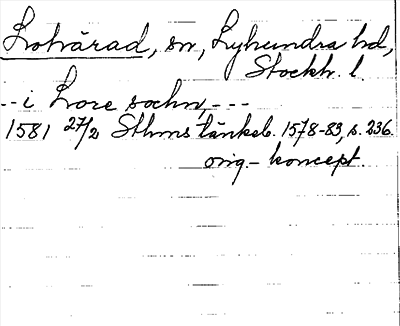 Lohärad, sn, Lyhundra hd,
Stockh. l.
-- i Lore sochn, ---
1581 27/2 Sthms tänkeb. 1578-83, s. 236.
orig.- koncept.